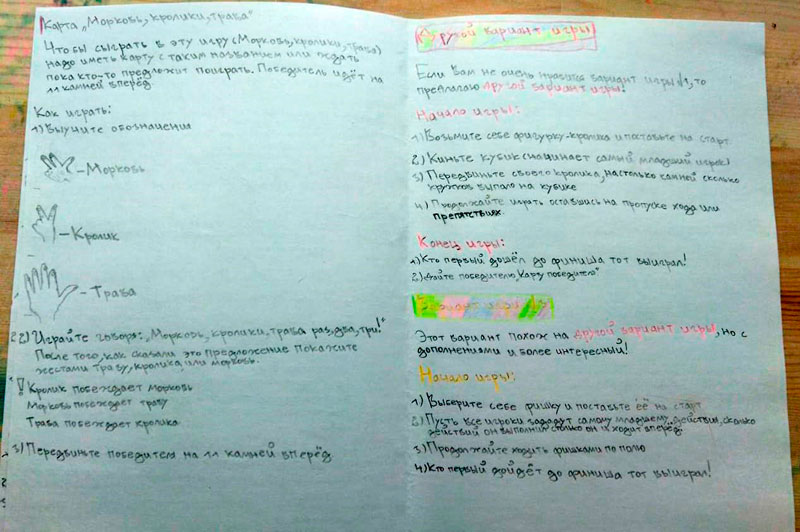 Карта „Морковь, кролики, трава"
Чтобы сыграть в эту игру (Морковь, кролики, трава)
надо иметь карту с таким названием или ждать
пока кто-то предложит поиграть. Победитель идёт на
11 камней вперёд
Как играть:
1) Выучите обозначения
– Морковь
– Кролик
– Трава
2) Играйте говоря: „Морковь, кролики, трава раз, два, три!"
После того, как сказали это предложение покажите
жестами траву, кролика или морковь.
! Кролик побеждает морковь
Морковь побеждает траву
Трава побеждает кролика
3) Передвиньте победителя на 11 камней вперёд
Другой вариант игры
Если вам не очень нравится вариант игры №1, то
предлагаю другой вариант игры!
Начало игры:
1) Возьмите себе фигурку-кролика и поставьте на старт
2) Киньте кубик (начинает самый младший игрок)
3) Передвиньте своего кролика, настолько камней сколько
кружков выпало на кубике
4) Продолжайте играть оставшись на пропуске хода или
препятствиях.
Конец игры:
1) Кто первый дошёл до финиша тот выиграл!
2) Дайте победителю „Карту победителя"
Вариант игры
Этот вариант похож на другой вариант игры, но с
дополнениями и более интересный!
Начало игры:
1) Выберите себе фишку и поставьте её на старт
2) Пусть все игроки зададут самому младшему действия, сколько
действий он выполнил столько он и ходит вперёд.
3) Продолжайте ходить фишками по полю
4) Кто первый дойдёт до финиша тот выиграл!